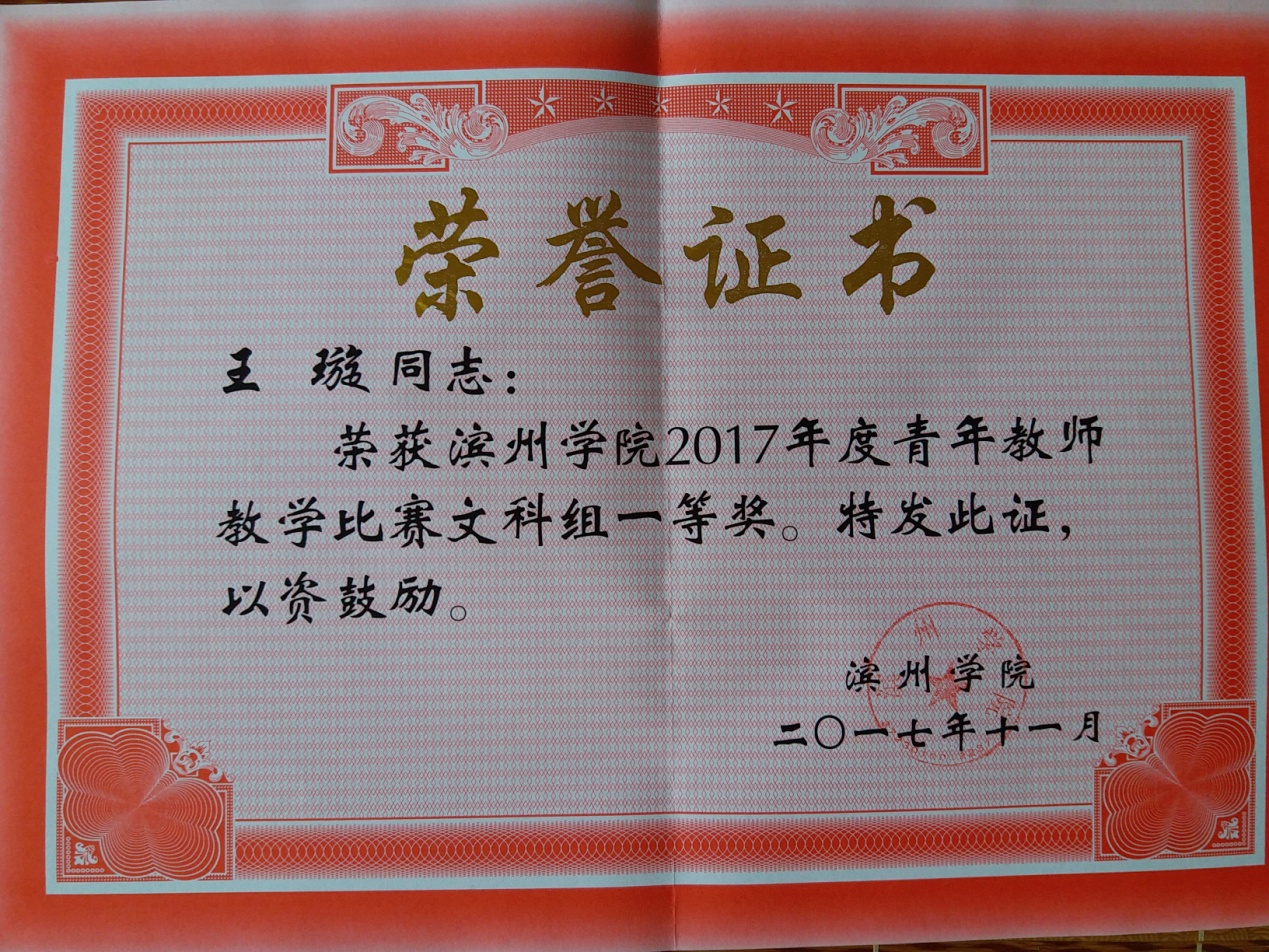 荣誉证书
王 璇同志：
荣获滨州学院2017年度青年教师
教学比赛文科组一等奖。特发此证，
以资鼓励。
滨州学院
二〇一七年十一月